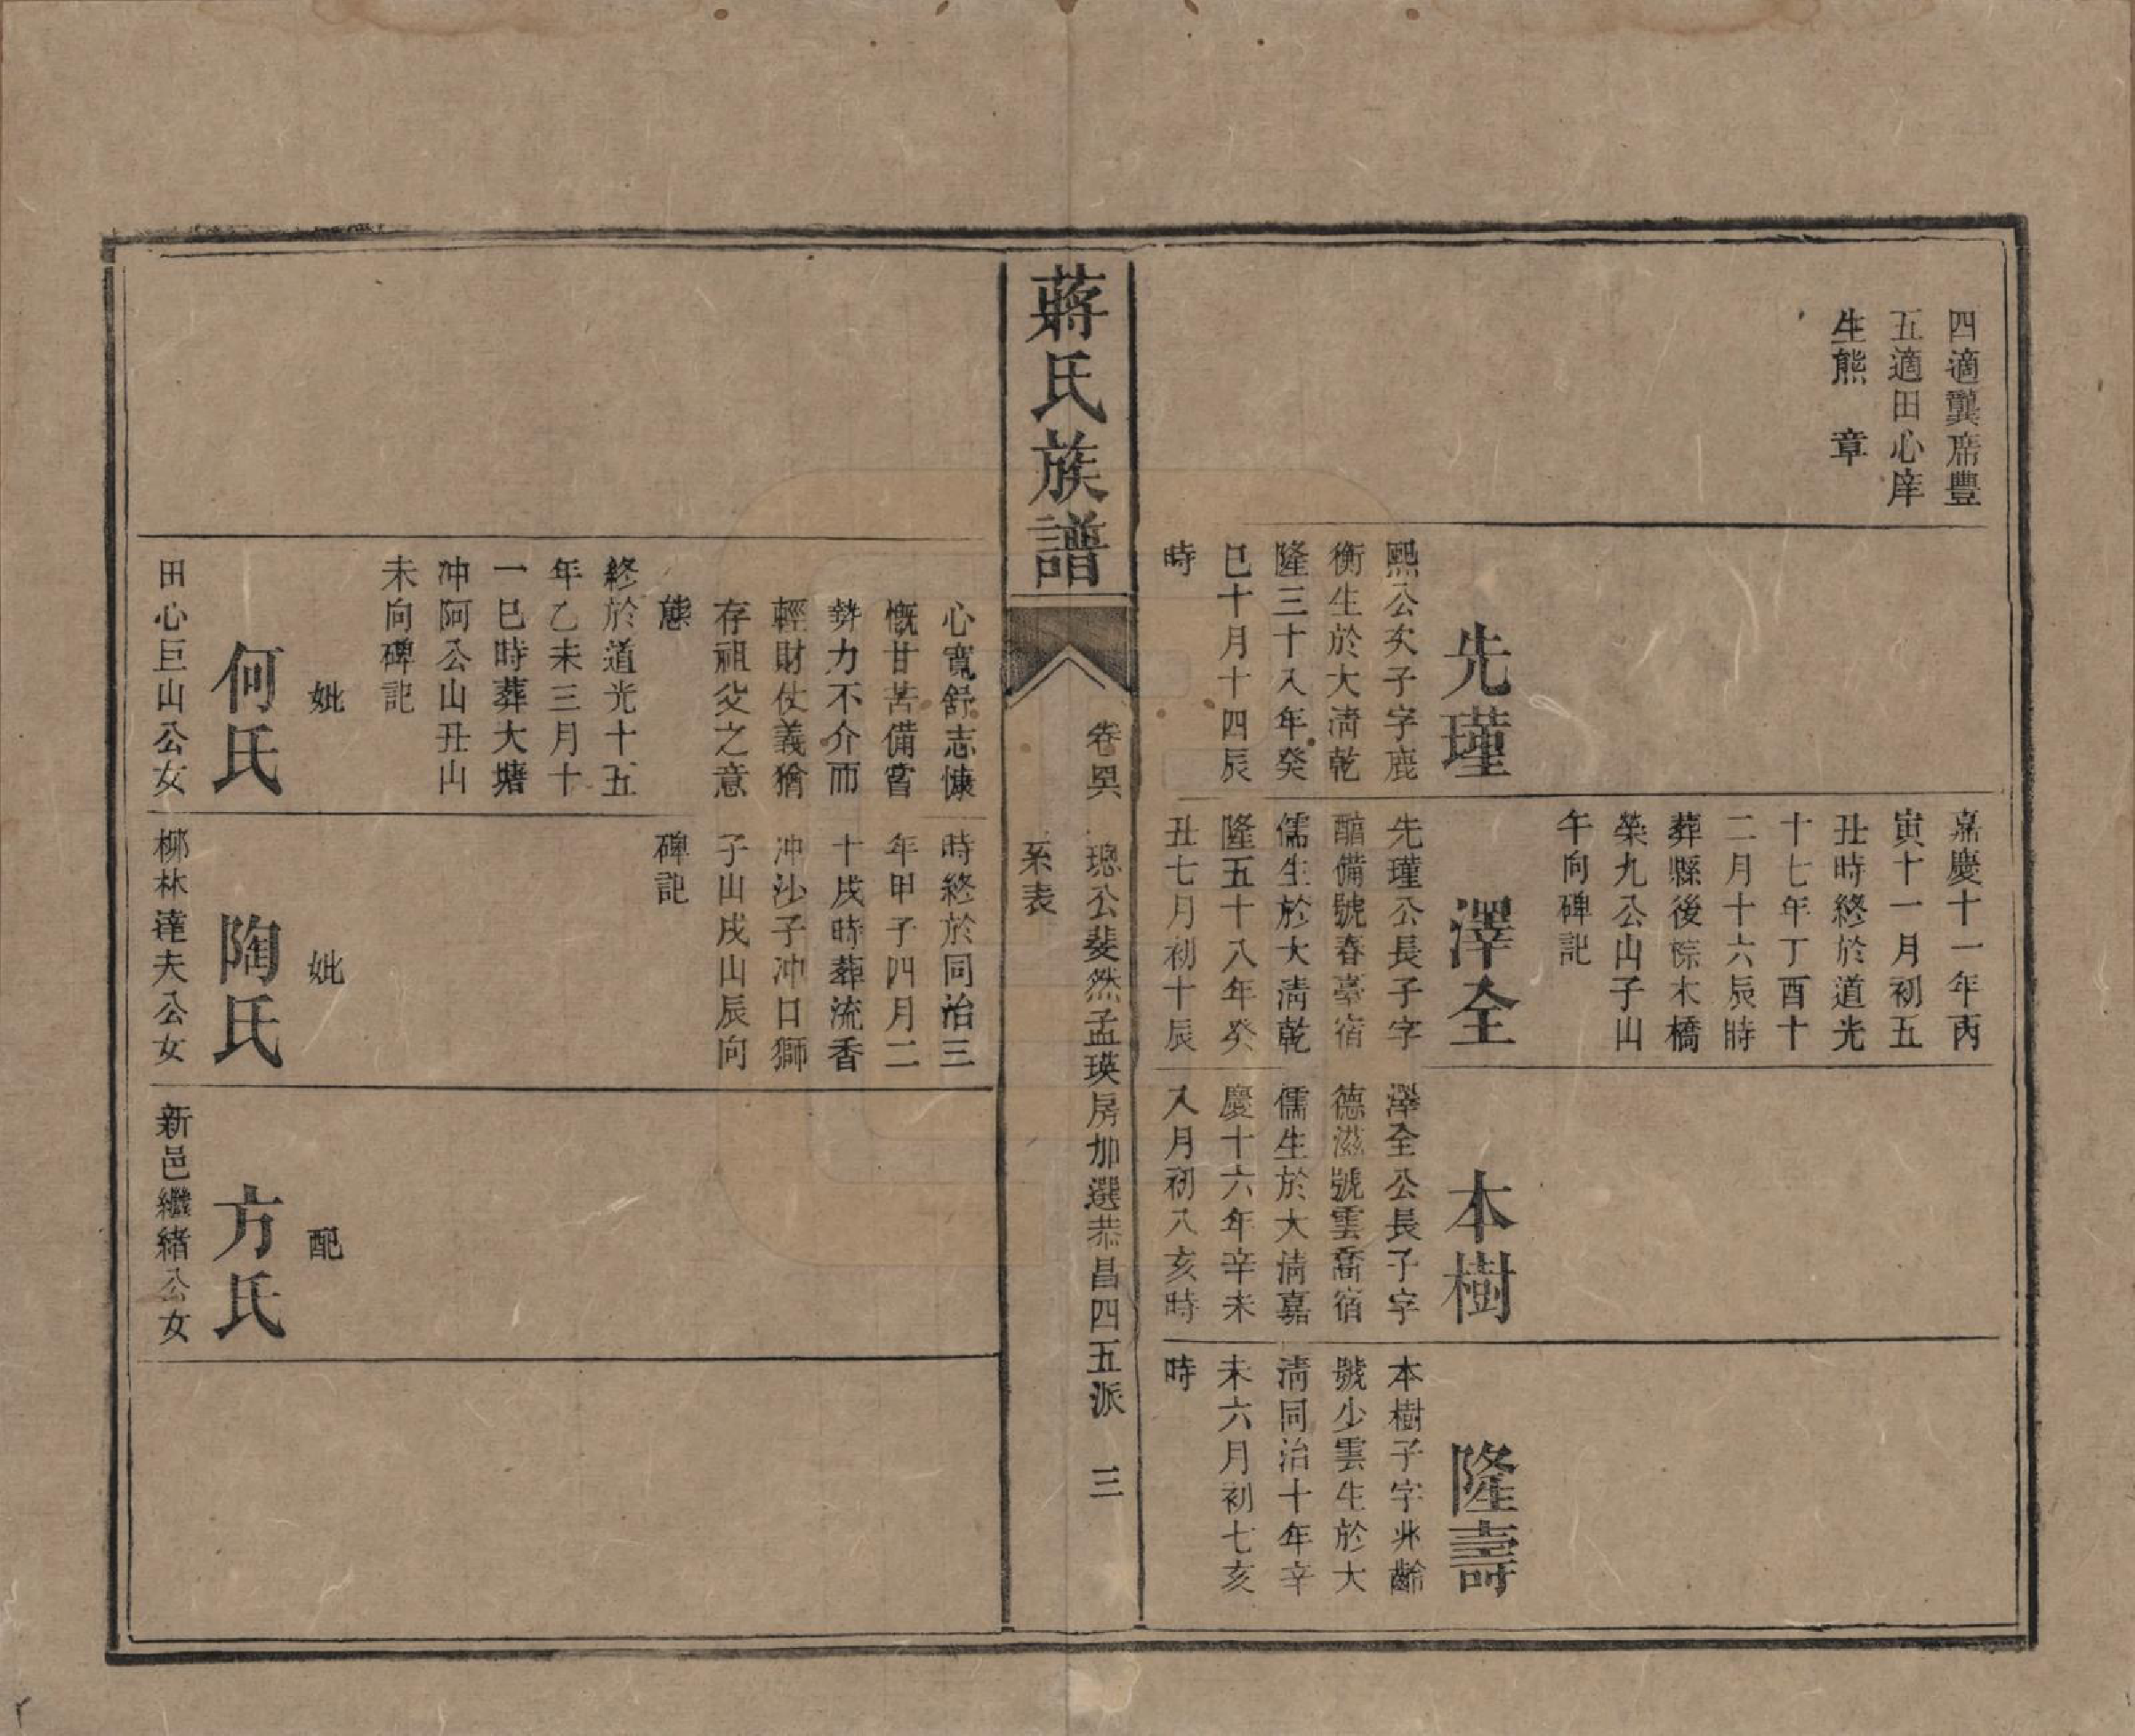 四適龔席豐
五適田心庠
生熊　章
先瑾
熙公次子字鹿
衡生於大淸乾
隆三十八年癸
巳十月十四辰
時
嘉慶十一年丙
寅十一月初五
丑時終於道光
十七年丁酉十
二月十六辰時
葬縣後棕木橋
榮九公山子山
午向碑記
澤全
先瑾公長子字
醕備號春臺宿
儒生於大淸乾
隆五十八年癸
丑七月初十辰
本樹
澤全公長子字
德滋號雲喬宿
儒生於大淸嘉
慶十六年辛未
八月初八亥時
隆壽
本樹子字兆齡
號少雲生於大
淸同治十年辛
未六月初七亥
時
蔣氏族譜
卷
璁公斐然孟瑛房加選恭昌四五派　三
系表
心寬舒志慷
慨甘苦備嘗
勢力不介而
輕財仗義猶
存祖父之意
態
終於道光十五
年乙未三月十
一巳時葬大塘
冲阿公山丑山
未向碑記
妣
何氏
田心巨山公女
時終於同治三
年甲子四月二
十戌時葬流香
冲沙子冲口獅
子山戌山辰向
碑記
妣
陶氏
柳林達夫公女
配
方氏
新邑繼緒公女